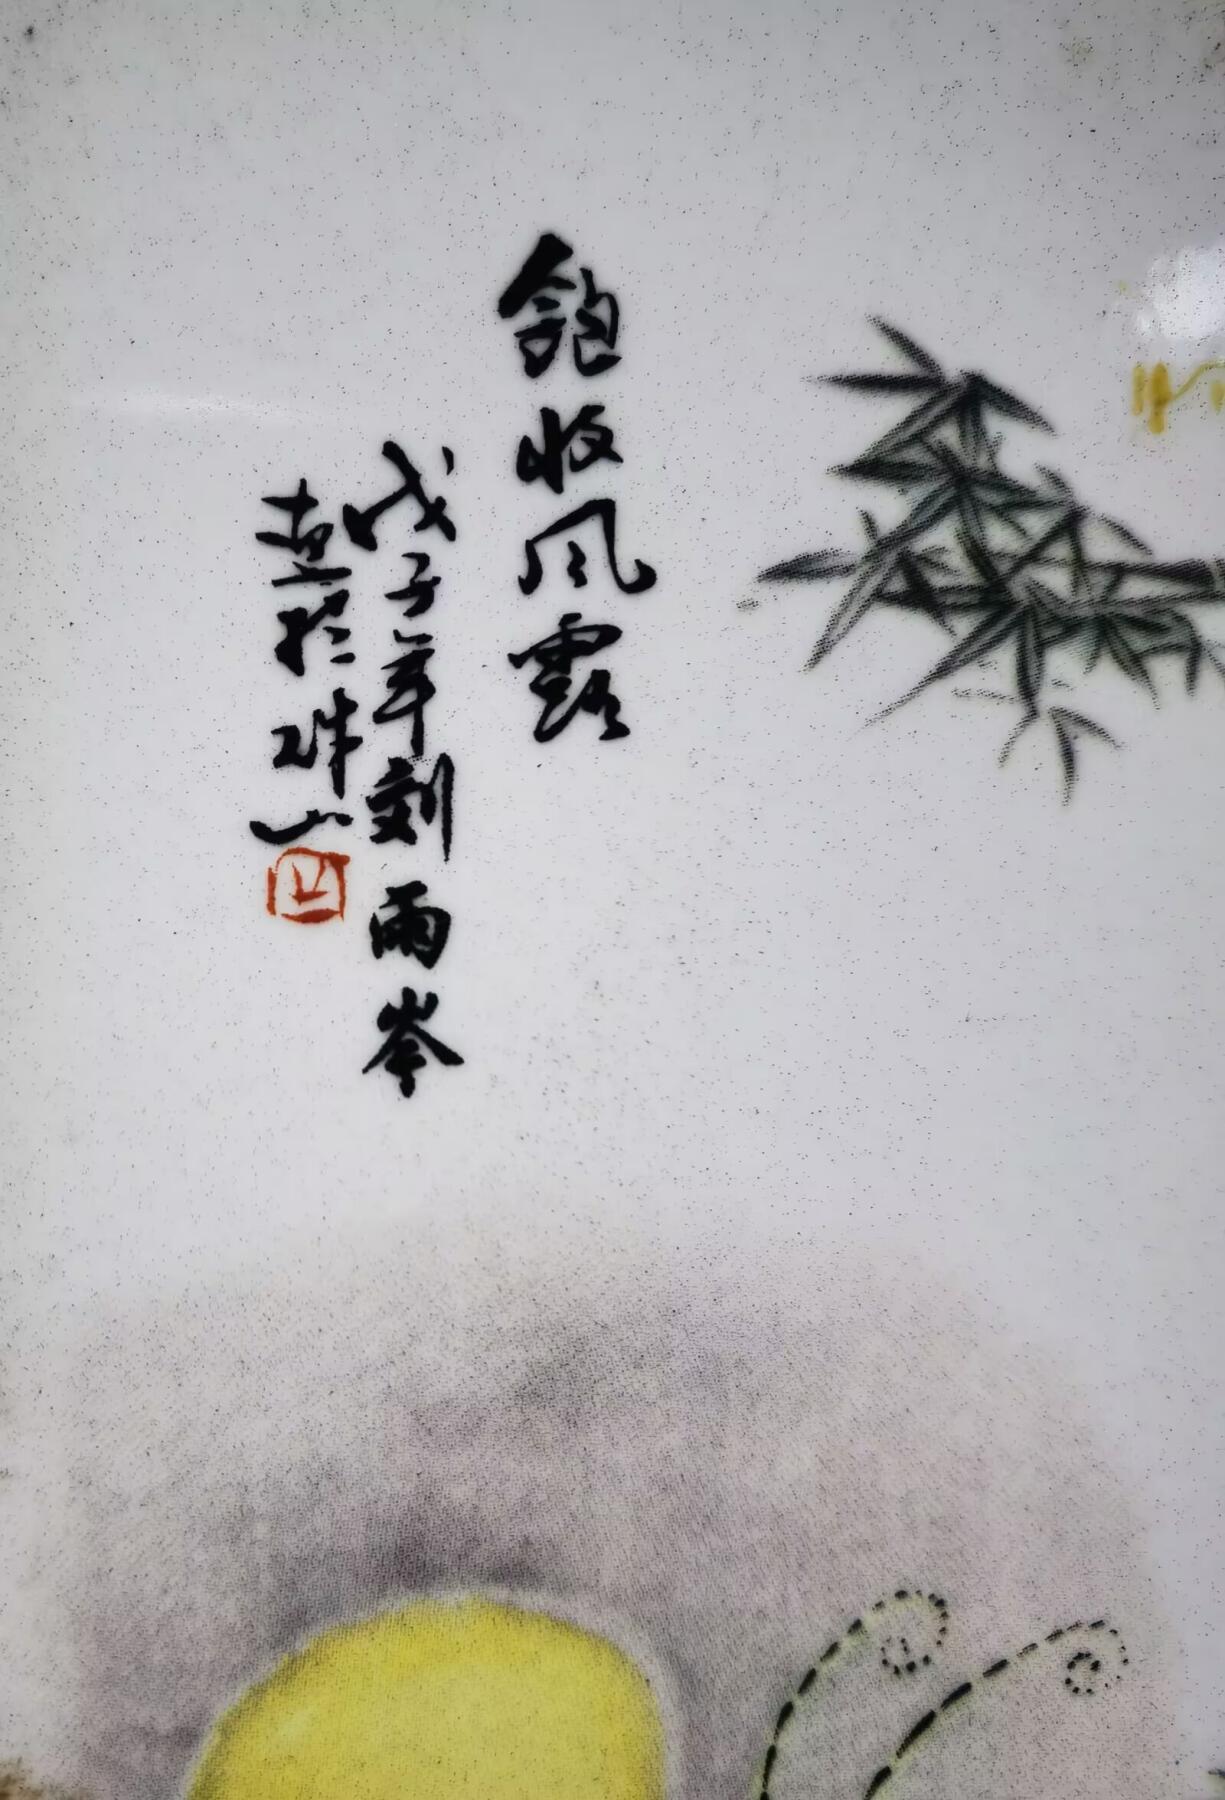 饱收风露
戊子年刘雨岑
画於珠山